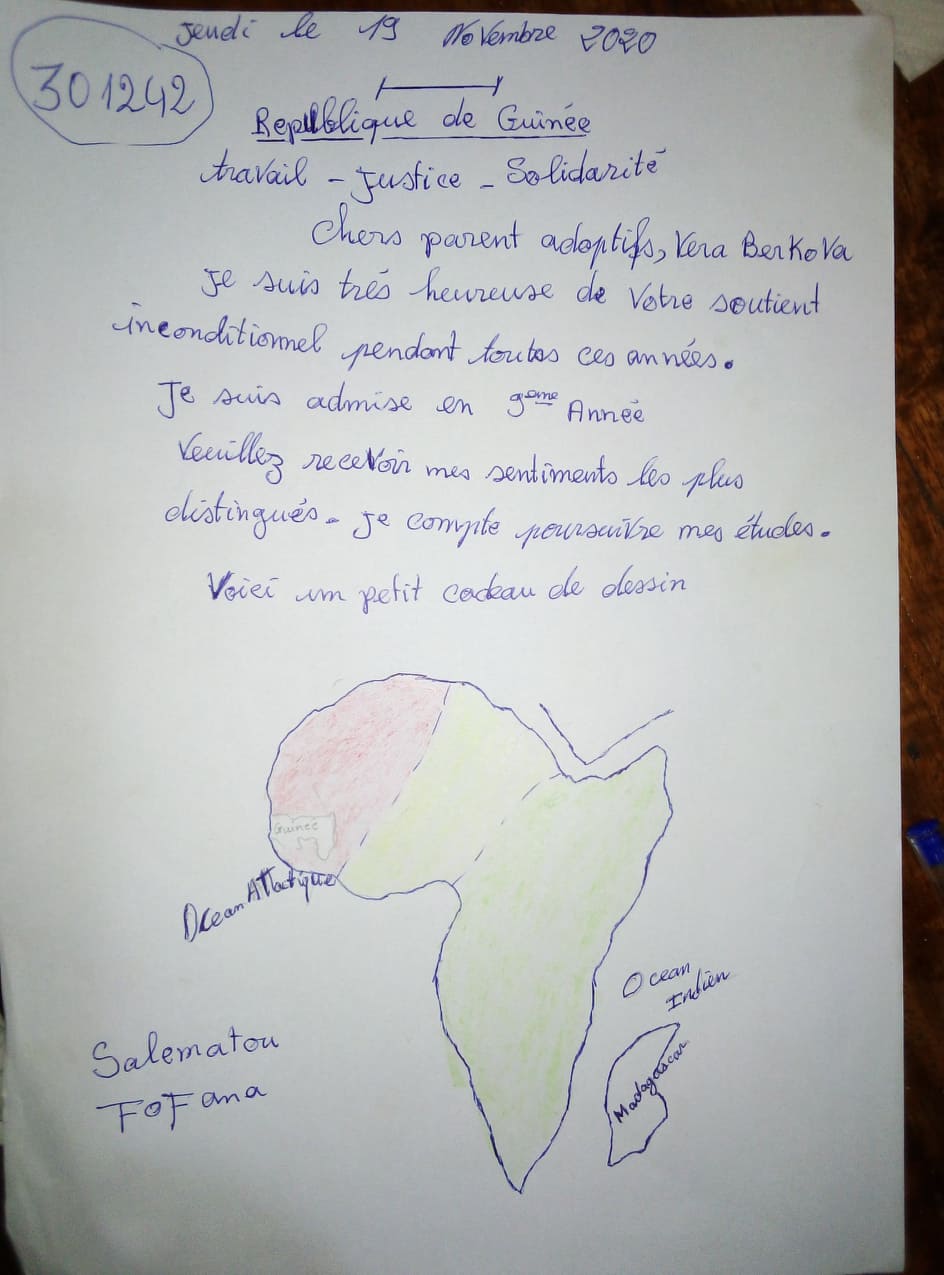 Jeudi le 19 Novembre 2020
301242
Republique de Guinée
travail - Justice - Solidarité
Chers parent adoptifs, Vera BerkoVa
Je suis très heureuse de Votre soutient
inconditionnel pendant toutes ces années.
Je suis admise en 9eme Année
Veuillez recevoir mes sentiments les plus
distingués. Je compte poursuivre mes études.
Voici um petit cadeau de dessin
Guinée
Ocean Atlactique
Ocean
Indien
Madagascar
Salematou
FoFana